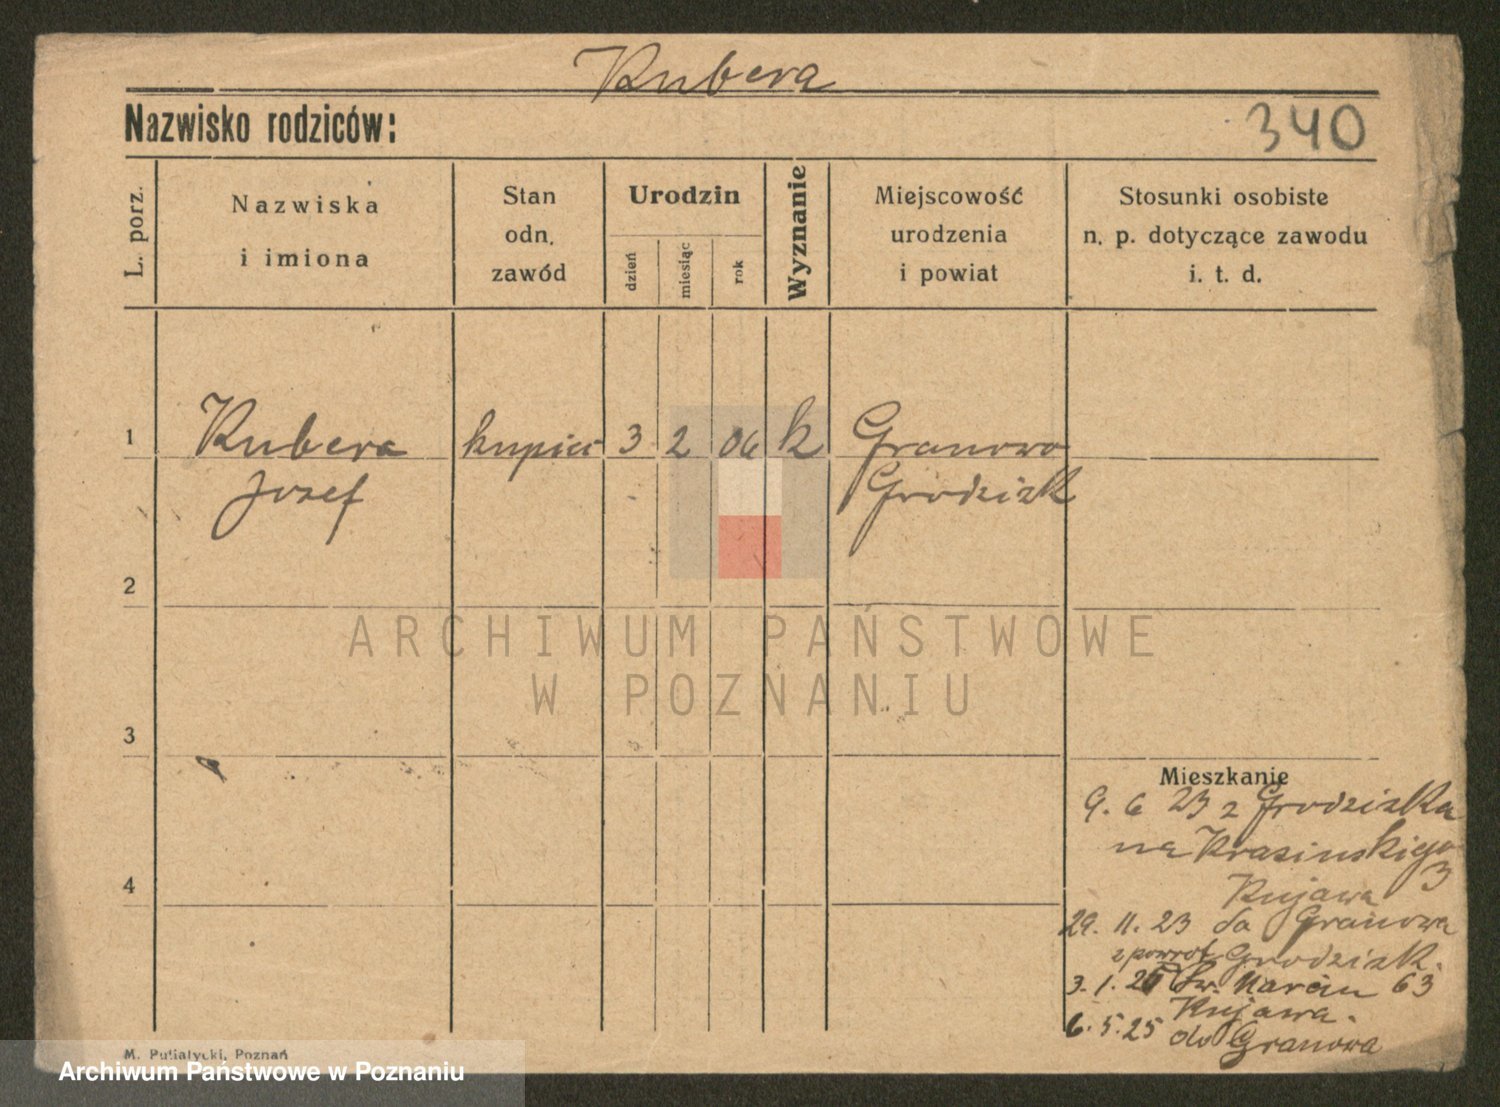 Kubera
Nazwisko rodziców:
340
L. porz.
Nazwiska
i imiona
Stan
odn.
zawód
Urodzin
dzień
miesiąc
rok
Wyznanie
Miejscowość
urodzenia
i powiat
Stosunki osobiste
n. p. dotyczące zawodu
i. t. d.
1 Kubera kupiec 3 2 06 k Granowo
Józef Grodzisk
2
ARCHIWUM PAŃSTWOWE
W POZNANIU
3
Mieszkanie
9. 6 23 z Grodziska
na Krasińskiego
3
4
Kujawa
29. 11. 23 do Granowa
z powrot Grodzisk.
3. 1. Św. Marcin 63
Kujawa.
6. 5. 25 do Granowa
M. Putiatycki, Poznań
Archiwum Państwowe w Poznaniu